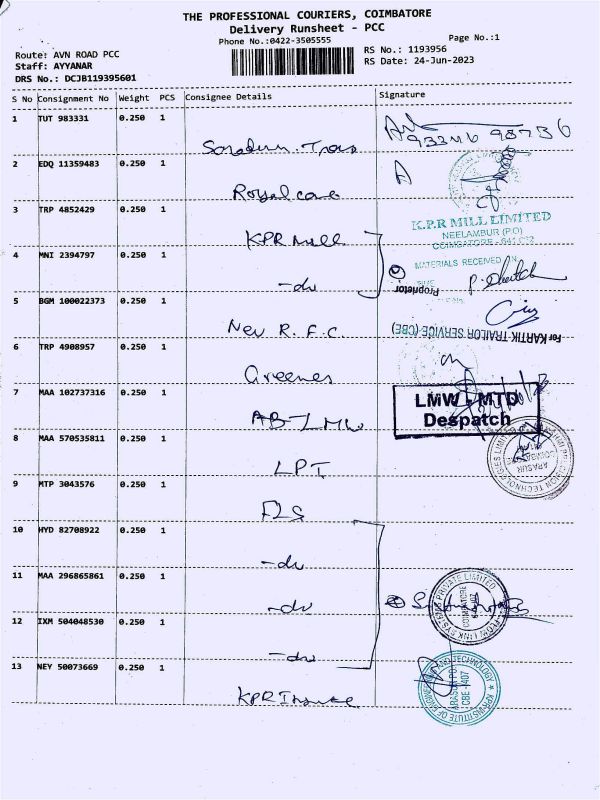 THE PROFESSIONAL COURIERS, COIMBATORE
Delivery Runsheet - PCC
Phone No.:0422-3505555
Page No.:1
Route: AVN ROAD PCC
RS No.: 1193956
Staff: AYYANAR
RS Date: 24-Jun-2023
DRS No.: DCJB119395601
S No Consignment No Weight PCS Consignee Details Signature
1 TUT 983331 0.250 1
2 EDQ 11359483 0.250 1
Royal care
3 TRP 4852429 0.250 1
KPR Mill
K.P.R MILL LIMITED
NEELAMBUR (P.O)
COIMBATORE
4 MNI 2394797 0.250 1
MATERIALS RECEIVED
-do
Proprietor
5 BGM 100022373 0.250 1
New R.F.C.
For KARTIK TRAILOR SERVICE (CBE)
6 TRP 4908957 0.250 1
Greenes
7 MAA 102737316 0.250 1
LMW - MTD
Despatch
AB-LMW
8 MAA 570535811 0.250 1
LPT
9 MTP 3043576 0.250 1
FLS
10 HYD 82708922 0.250 1
-do
11 MAA 296865861 0.250 1
-do
12 IXM 504048530 0.250 1
-do
13 NEY 50073669 0.250 1